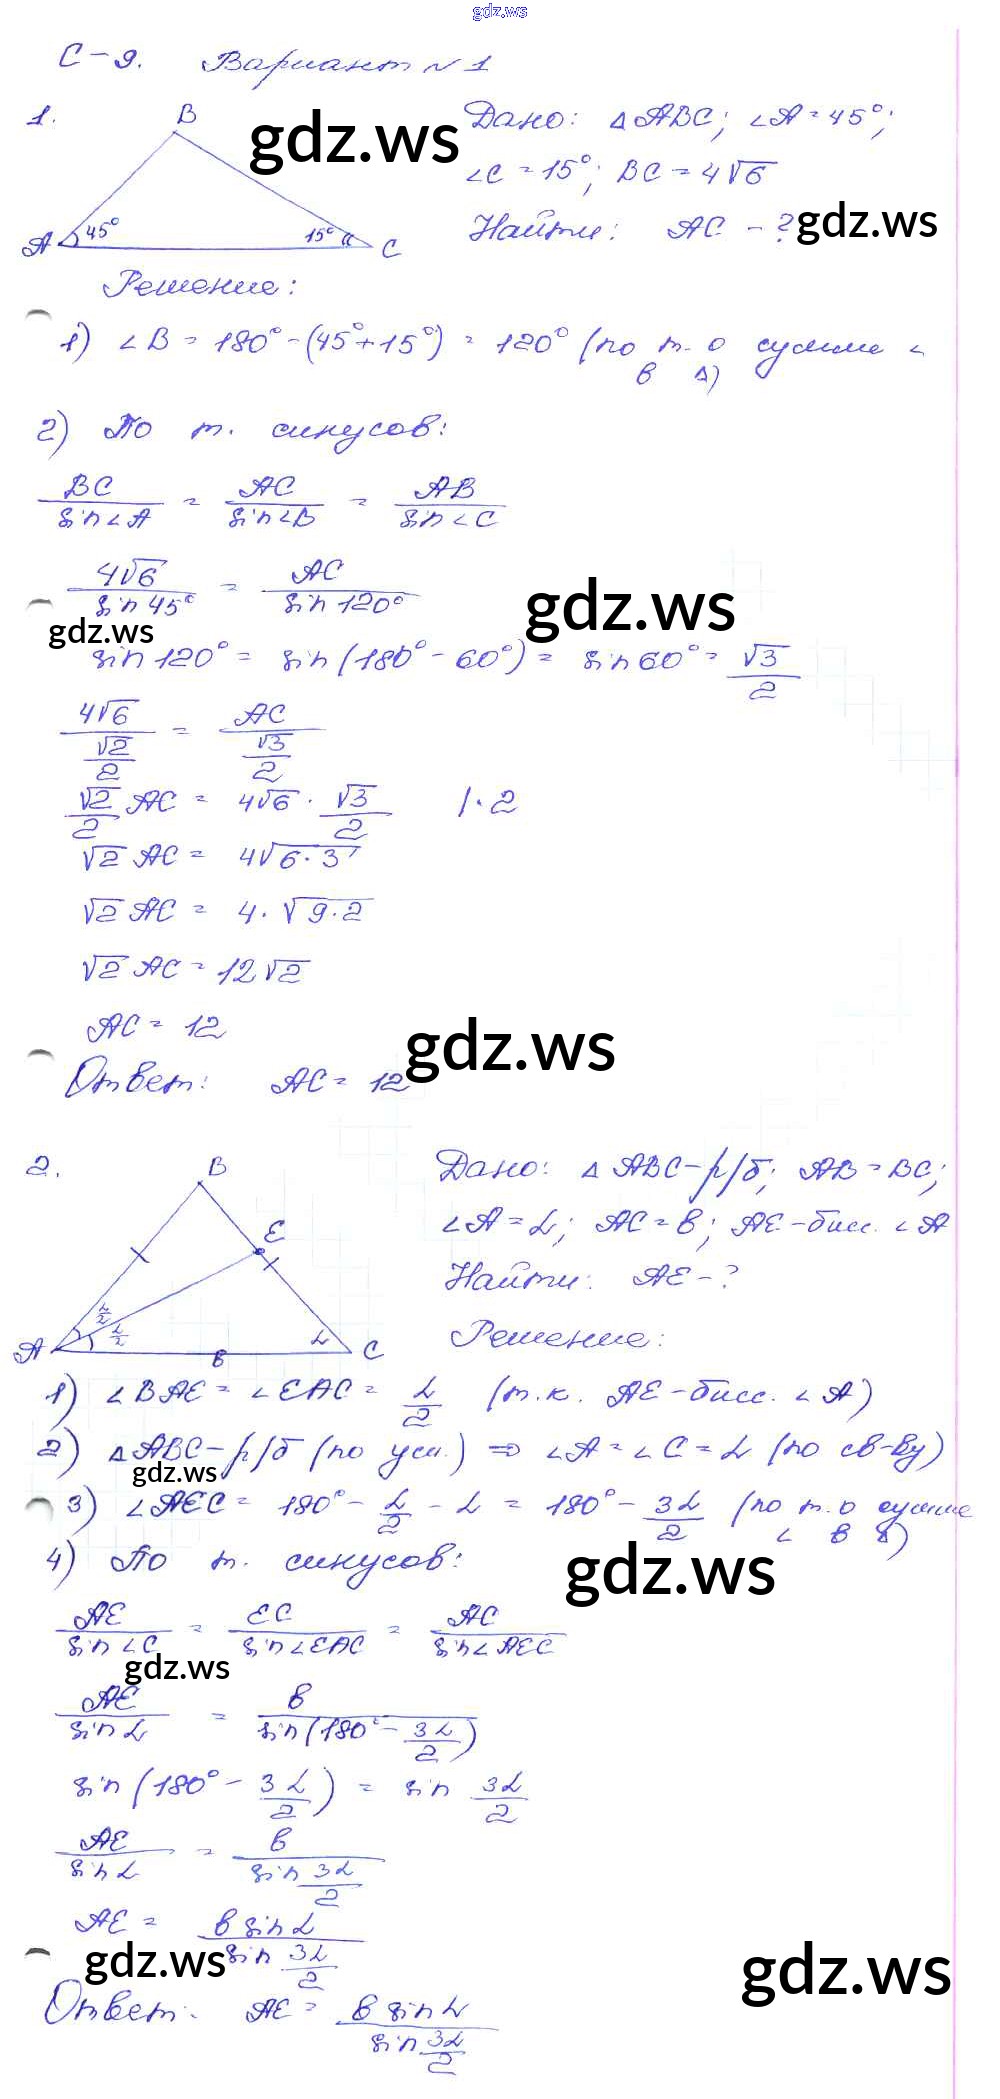 gdz.ws
С-9. Вариант №1
1.
B
45°
15°
A
C
gdz.ws
Дано: △ABC; ∠A=45°;
∠C=15°; BC=4√6
Найти: AC-?
gdz.ws
Решение:
1) ∠B = 180°-(45°+15°) = 120° (по т. о сумме ∠
в △)
2) По т. синусов:
BC/sin∠A = AC/sin∠B = AB/sin∠C
4√6/sin45° = AC/sin120°
gdz.ws
gdz.ws
sin120° = sin(180°-60°) = sin60° = √3/2
4√6/(√2/2) = AC/(√3/2)
√2/2 AC = 4√6 · √3/2 |·2
√2 AC = 4√6·3
√2 AC = 4·√9·2
√2 AC = 12√2
AC = 12
gdz.ws
Ответ: AC = 12
2.
B
E
α/2
α/2
α
A
в
C
Дано: △ABC-р/б; AB=BC;
∠A=α; AC=в; AE-бисс. ∠A
Найти: AE-?
Решение:
1) ∠BAE = ∠EAC = α/2 (т.к. AE-бисс. ∠A)
2) △ABC-р/б (по усл.) ⇒ ∠A=∠C=α (по св-ву)
gdz.ws
3) ∠AEC = 180° - α/2 - α = 180° - 3α/2 (по т. о сумме
∠ в △)
4) По т. синусов:
gdz.ws
AE/sin∠C = EC/sin∠EAC = AC/sin∠AEC
gdz.ws
AE/sinα = в/sin(180°-3α/2)
sin(180°-3α/2) = sin 3α/2
AE/sinα = в/sin 3α/2
AE = в sinα/sin 3α/2
gdz.ws
gdz.ws
Ответ: AE = в sinα/sin 3α/2